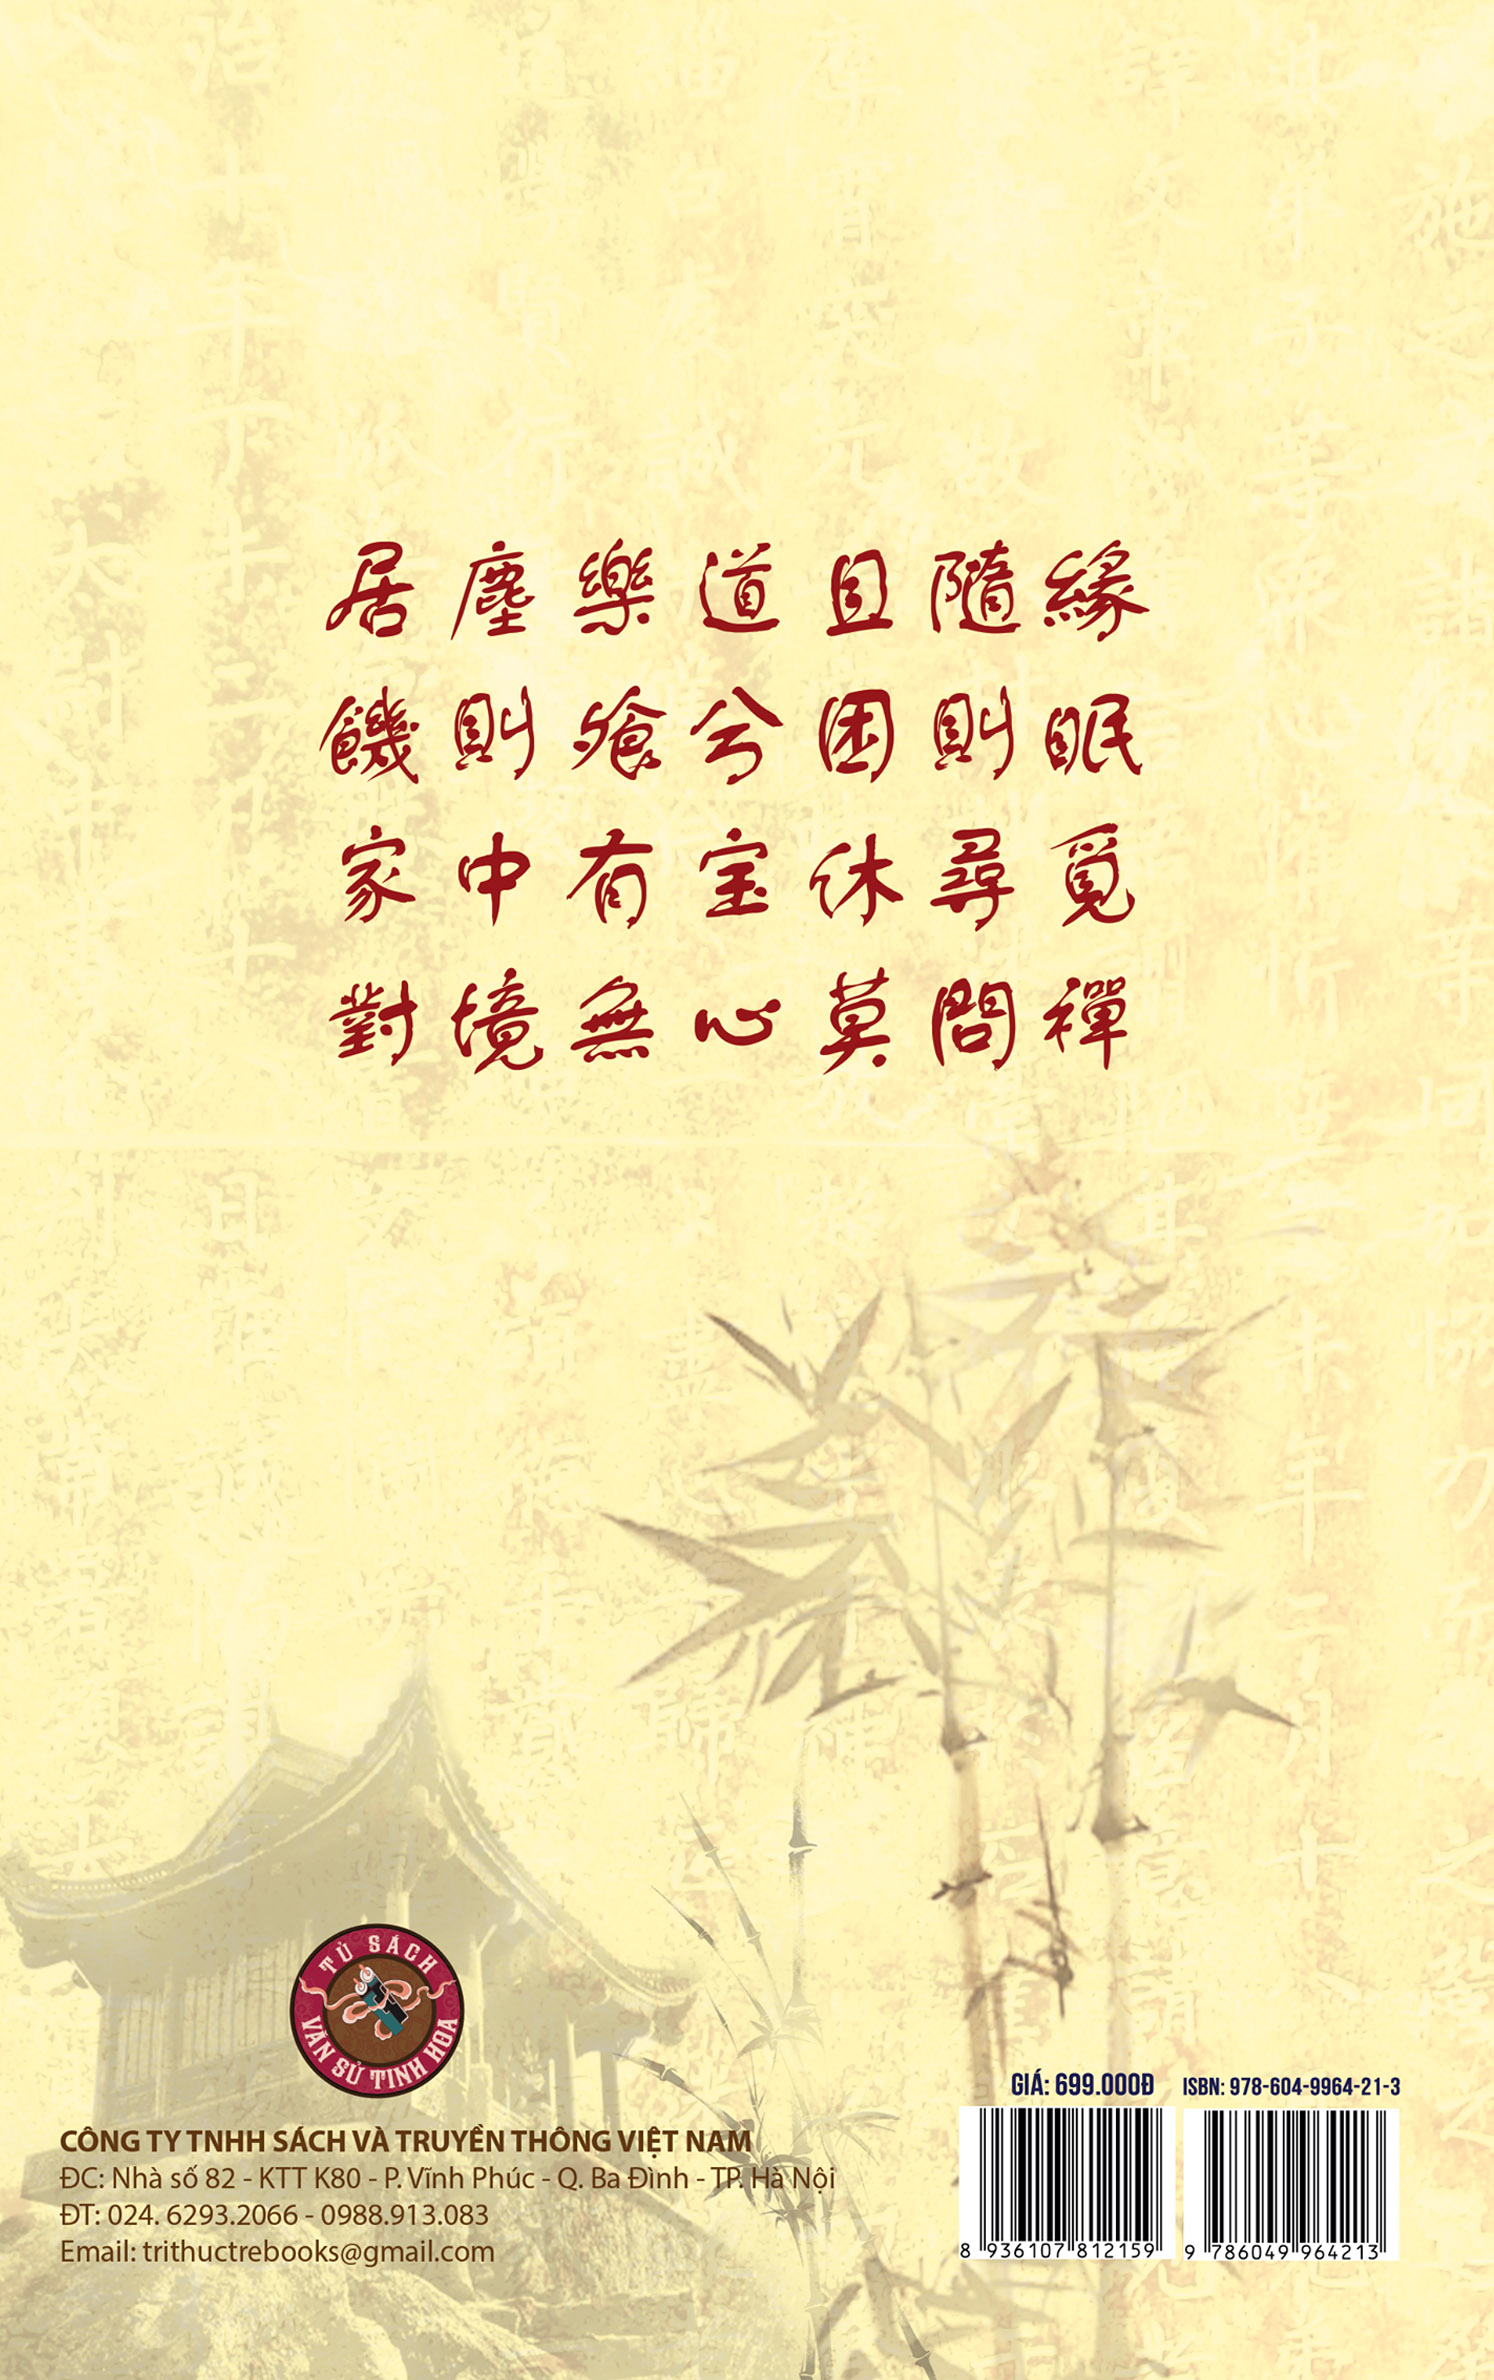 居塵樂道且隨緣
饑則飡兮困則眠
家中有宝休尋覓
對境無心莫問禪
TỦ SÁCH
VĂN SỬ TINH HOA
GIÁ: 699.000Đ
ISBN: 978-604-9964-21-3
CÔNG TY TNHH SÁCH VÀ TRUYỀN THÔNG VIỆT NAM
ĐC: Nhà số 82 - KTT K80 - P. Vĩnh Phúc - Q. Ba Đình - TP. Hà Nội
ĐT: 024. 6293.2066 - 0988.913.083
Email: trithuctrebooks@gmail.com
8 936107 812159
9 786049 964213